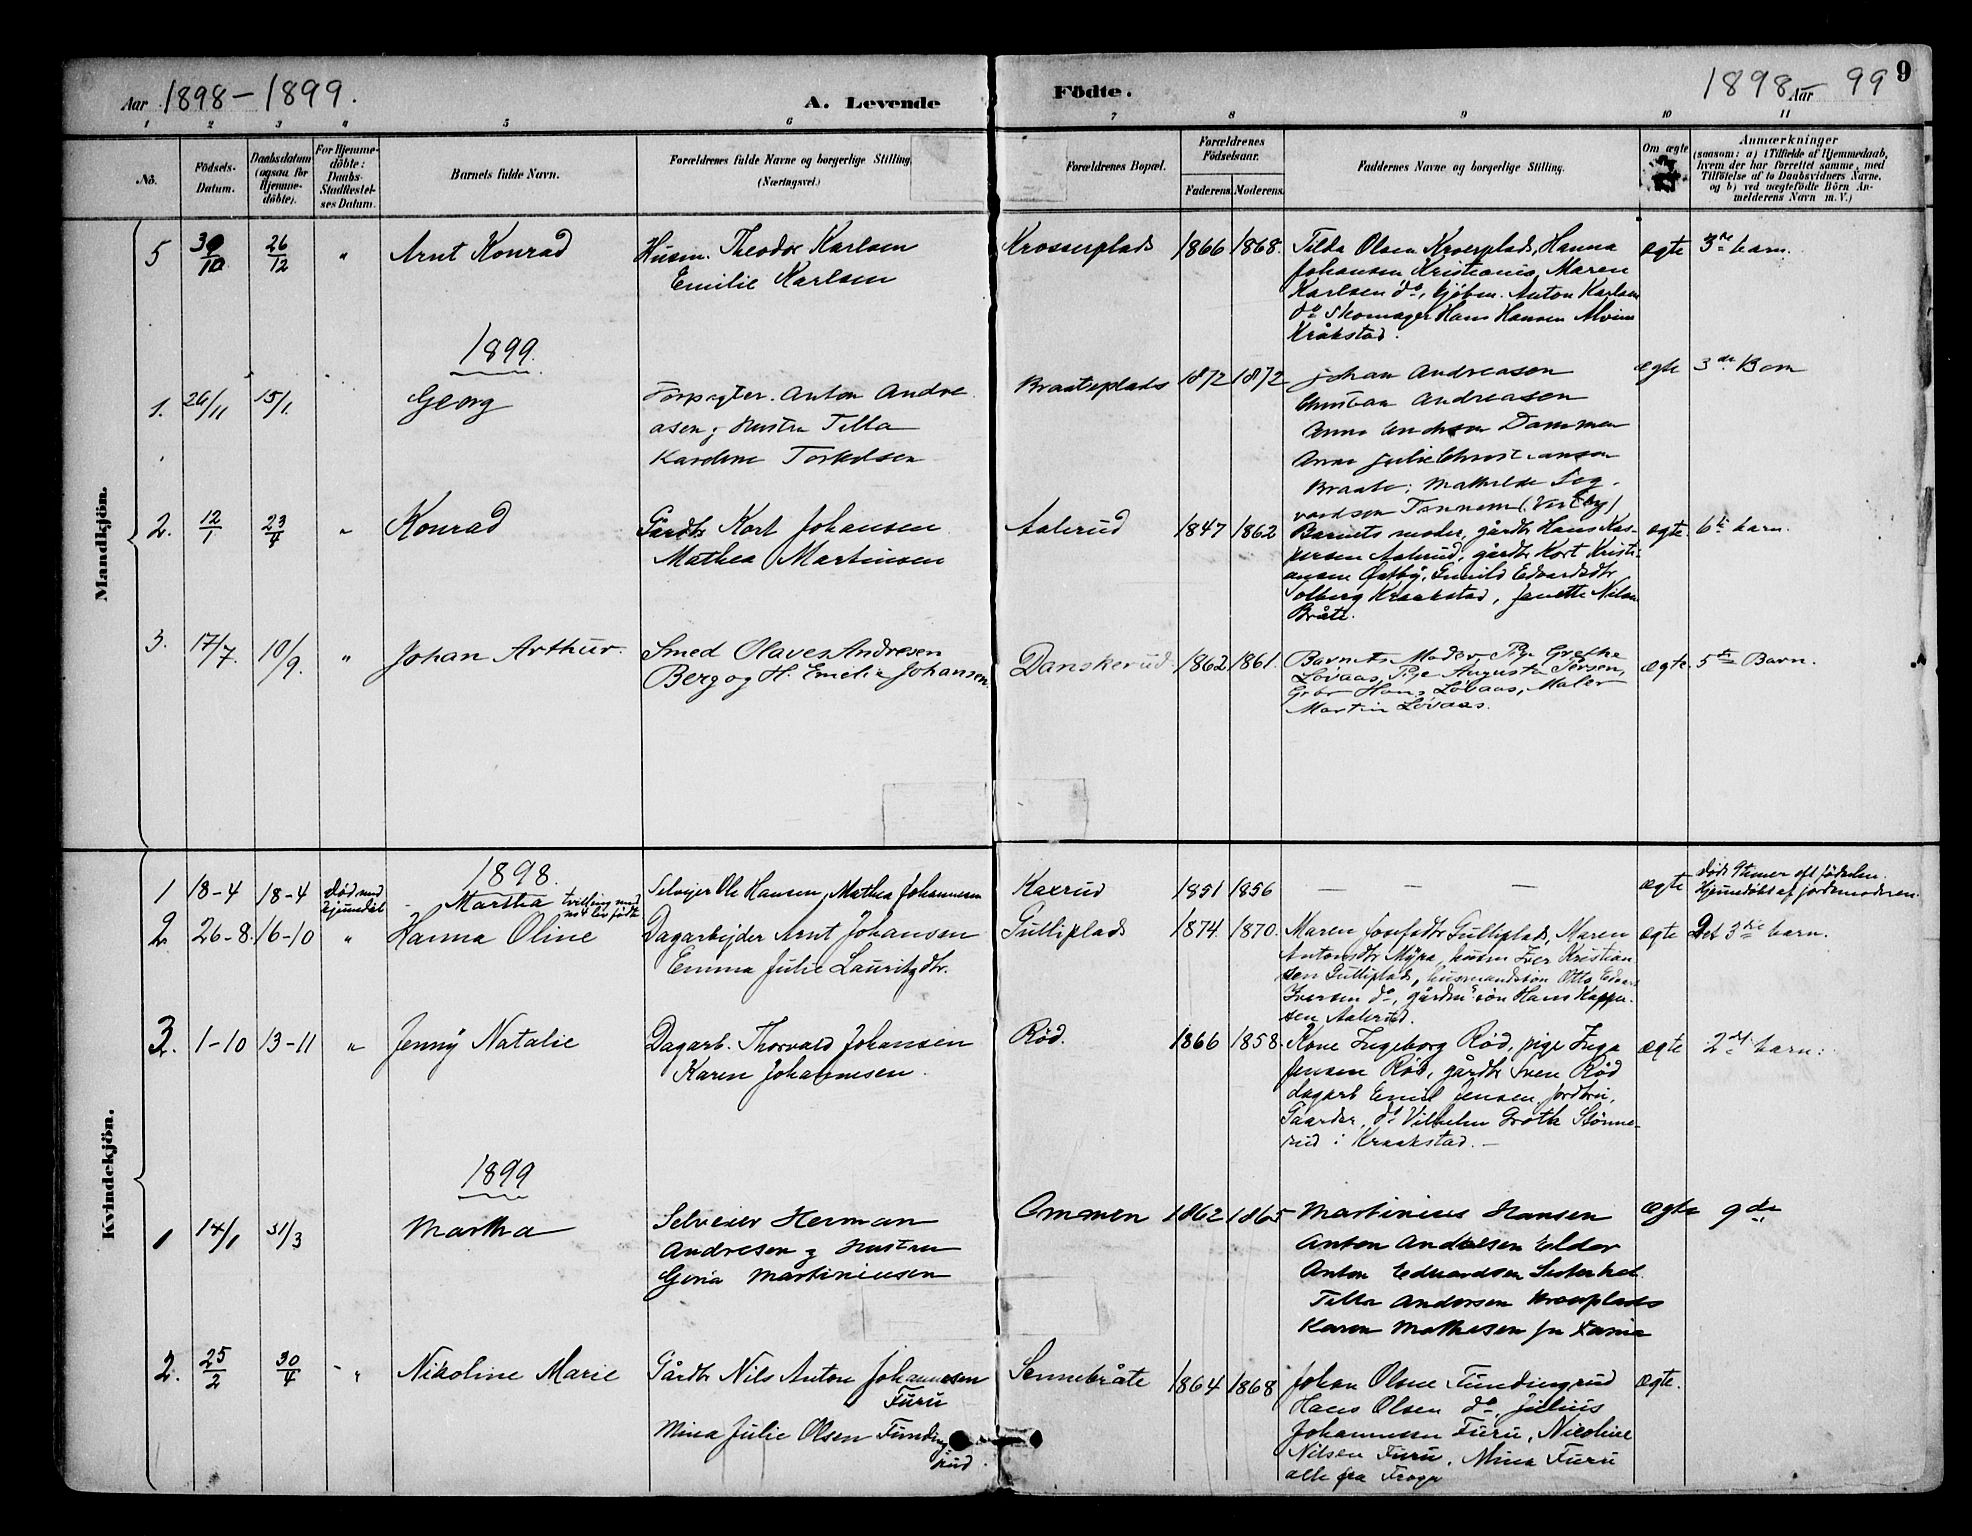 Aar 1898 – 1899.
A. Levende Födte.
1898 – 99 Aar 9
1 2 3 4 5 6 7 8 9 10 11
No.
Födsels-
Datum.
Daabsdatum
(ogsaa for
Hjemme-
döbte).
For Hjemme-
döbte:
Daabs-
Stadfæstel-
ses Datum.
Barnets fulde Navn.
Forældrenes fulde Navne og borgerlige Stilling.
(Næringsvei.)
Forældrenes Bopæl.
Forældrenes
Födselsaar.
Faderens. Moderens.
Faddernes Navne og borgerlige Stilling.
Om ægte
Anmærkninger
(saasom: a) i Tilfælde af Hjemmedaab,
hvem der har forrettet samme, med
Tilföielse af to Daabsvidners Navne,
og b) ved uægtefödte Börn An-
melderens Navn m. V.)
Mandkjön.
5 30/10 26/12 " Arnt Konrad
Husm. Theodor Karlsen
Emilie Karlsen
Krosserplads 1866 1868.
Tilda Olsen Kroerplads, Hanna
Johansen Kristiania, Maren
Karlsen do, Anton Karlsen
do Skomager Hans Hansen
Kråkstad.
ægte 3die barn.
1899.
1. 26/11 15/1 Georg
Forpagter Anton Andre
asen og Hustru Tilla
Karoline Torkelsen
Braateplads 1872 1872
Johan Andreasen
Christian Andreasen
Anna Dammen
Anne Julie Christiansen
Braate; Mathilde Sig.
vardsen (Vestby)
ægte 3die Barn
2. 12/1 23/4 " Konrad
Gårdbr Kort Johansen
Mathea Martinsen
Aalerud 1847 1862
Barnets moder, gårdbr Hans Kas-
persen Aalerud, gårdbr Kort Kristi-
ansen Østby, Gunild Edvardsdtr
Solberg Kraakstad, Janette Nilsen
Bråte.
ægte. 6te barn.
3. 17/7. 10/9. " Johan Arthur.
Smed Olaves Andresen
Berg og H. Emelie Johansen.
Danskerud 1862 1861.
Barnets Moder, Pige Grethe
Løvaas, Pige Augusta Persen,
Grbr Hans Løvaas, Maler
Martin Løvaas.
ægte. 5te Barn.
Kvindekjön.
1898.
1 18-4 18-4 død med
hjemdåb
Martha tvilling med
no 4 lev. fødte
Selvejer Ole Hansen, Mathea Johannesen
Kaxrud 1851 1856 — — —
ægte død 9 timer eft födselen.
Hjemdøbt af jordemoderen.
2 26-8. 16-10 " Hanna Oline
Dagarbejder Arnt Johansen
Emma Julie Lauritzdtr.
Gulliplads 1874. 1870.
Maren Josefsdtr Gulliplads, Maren
Antonsdtr Myra, husm Iver Kristian-
sen Gulliplads, husmandssön Otto
Iversen do, gårdm.sön Hans
ægte Det 3die barn.
3. 1-10 13-11 " Jenny Natalie
Dagarb. Thorvald Johansen
Karen Johannesen.
Rød. 1866 1858.
Kone Ingeborg Rød, pige Inga
Jensen Rød, gårdbr Sven Rød
dagarb Emil Jensen,
Gaarder, do Vilhelm Grøth Stønne-
rud i Kraakstad. —
ægte 2det barn.
1899
1 14/1 31/3 Martha
Selveier Herman
Andresen og Hustru
Gina Martiniusen
Ommen 1862 1865
Martinius Hansen
Anton Andresen
Anton Edvardsen
Tilla Andersen Kroerplads
Karen Mathisen
ægte 9de
2. 25/2 30/4 " Nikoline Marie
Gårdbr Nils Anton Johannesen
Furu
Mina Julie Olsen Funding
rud
Sonnebråte 1864 1868
Johan Olsen Fundingrud
Hans Olsen do, Julius
Johannesen Furu, Nicoline
Nilsen Furu, Mina Furu
alle fra Frogn
ægte.